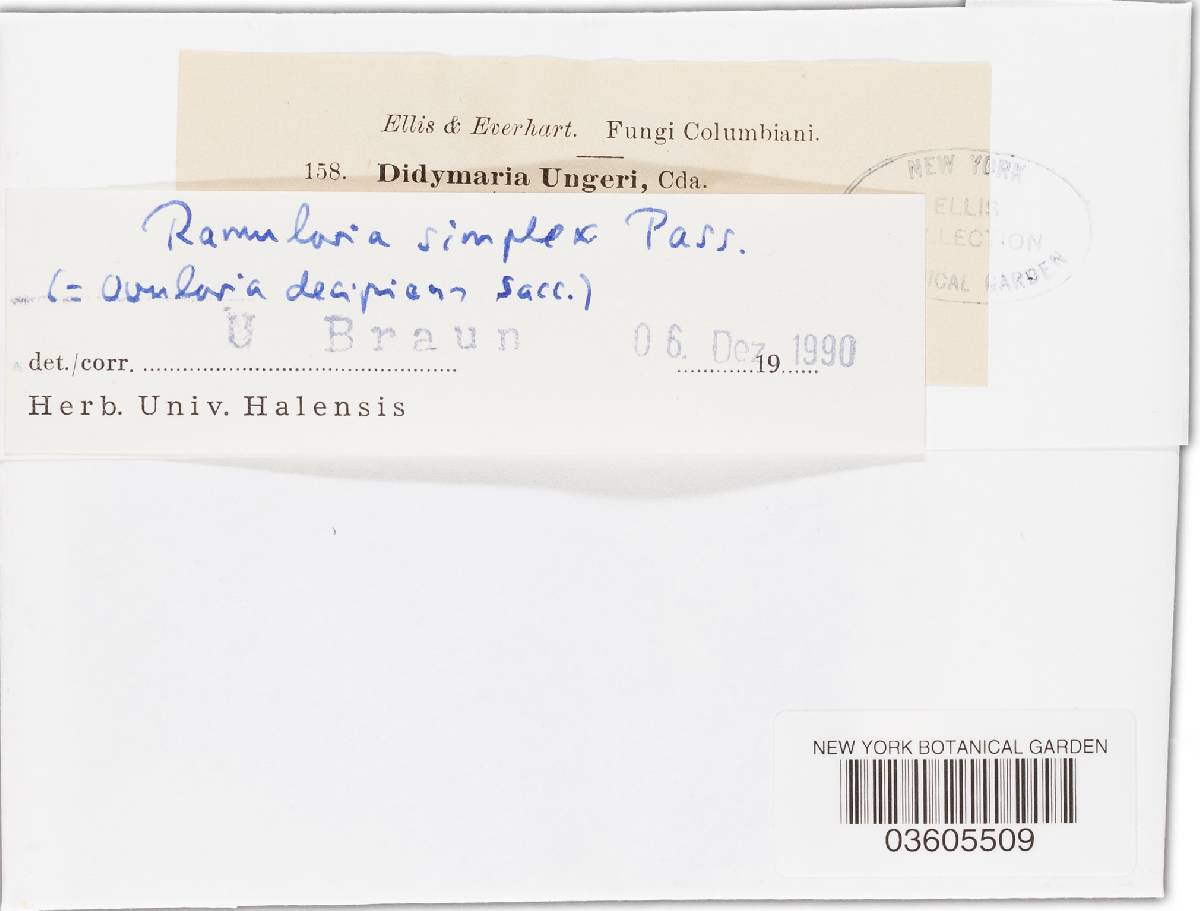 Ellis & Everhart. Fungi Columbiani.
158. Didymaria Ungeri, Cda.
NEW YORK
ELLIS
LLECTION
ICAL GARDEN
Ramularia simplex Pass.
(= Ovularia decipiens Sacc.)
U Braun 06. Dez. 1990
det./corr. ........................ 19......
Herb. Univ. Halensis
NEW YORK BOTANICAL GARDEN
03605509